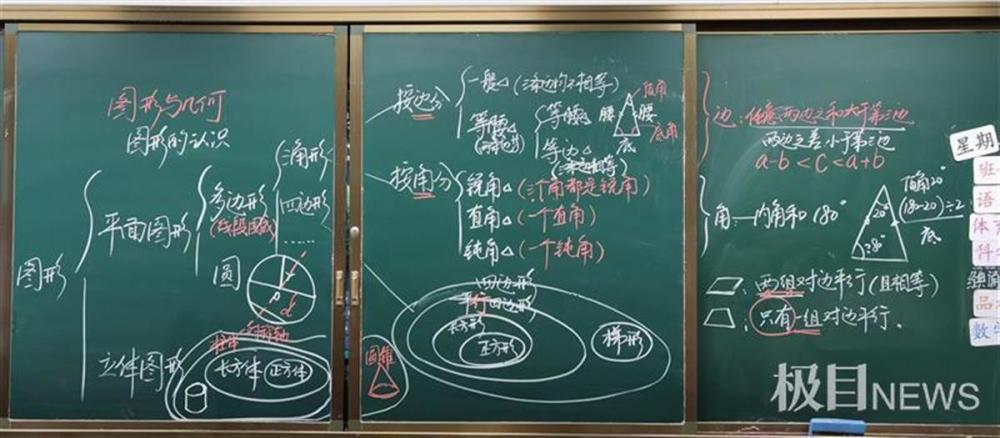 图形与几何
图形的认识
图形
平面图形
多边形
(线段围成)
三角形
四边形
……
圆
d
立体图形
柱体
长方体 正方体
圆锥
按边分
一般△(三条边均不相等)
等腰△
等腰△
等边△
腰 腰
顶角
底角
底
按角分
锐角△(三个角都是锐角)
直角△(一个直角)
钝角△(一个钝角)
四边形
平行四边形
长方形
正方形
梯形
边:任意两边之和大于第三边
两边之差小于第三边
a-b<c<a+b
角—内角和180°
顶角20°
(180-20)÷2
底
20°
80°
两组对边平行(且相等)
只有一组对边平行.
星期
班
语
体
科
品
数学
极目NEWS